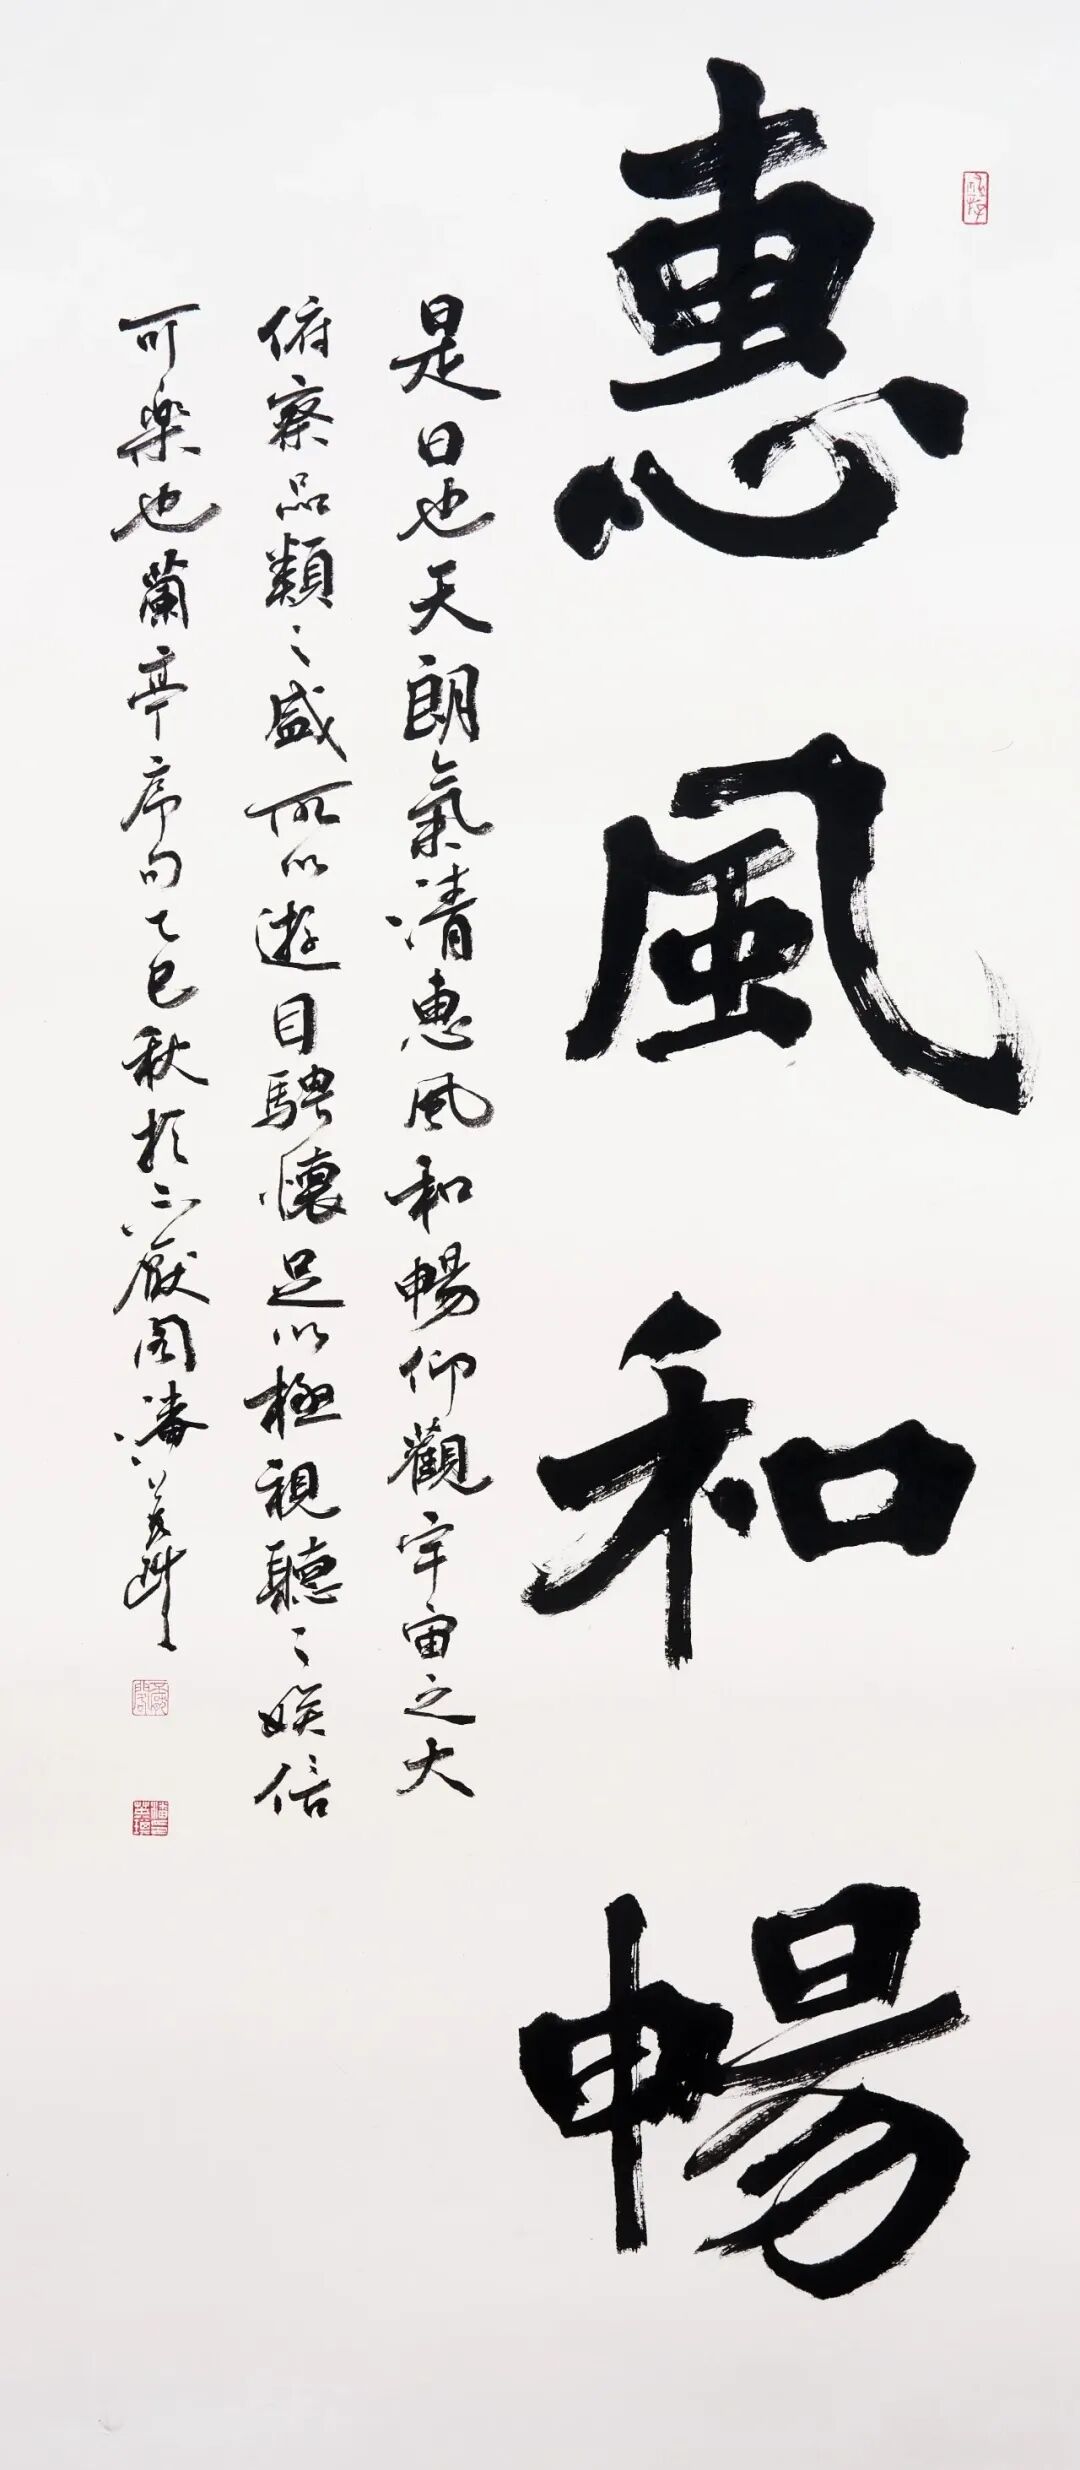 惠風和暢
是日也天朗氣清惠風和暢仰觀宇宙之大
俯察品類之盛所以遊目騁懷足以極視聽之娛信
可楽也蘭亭序句乙巳秋於不厭閣潘